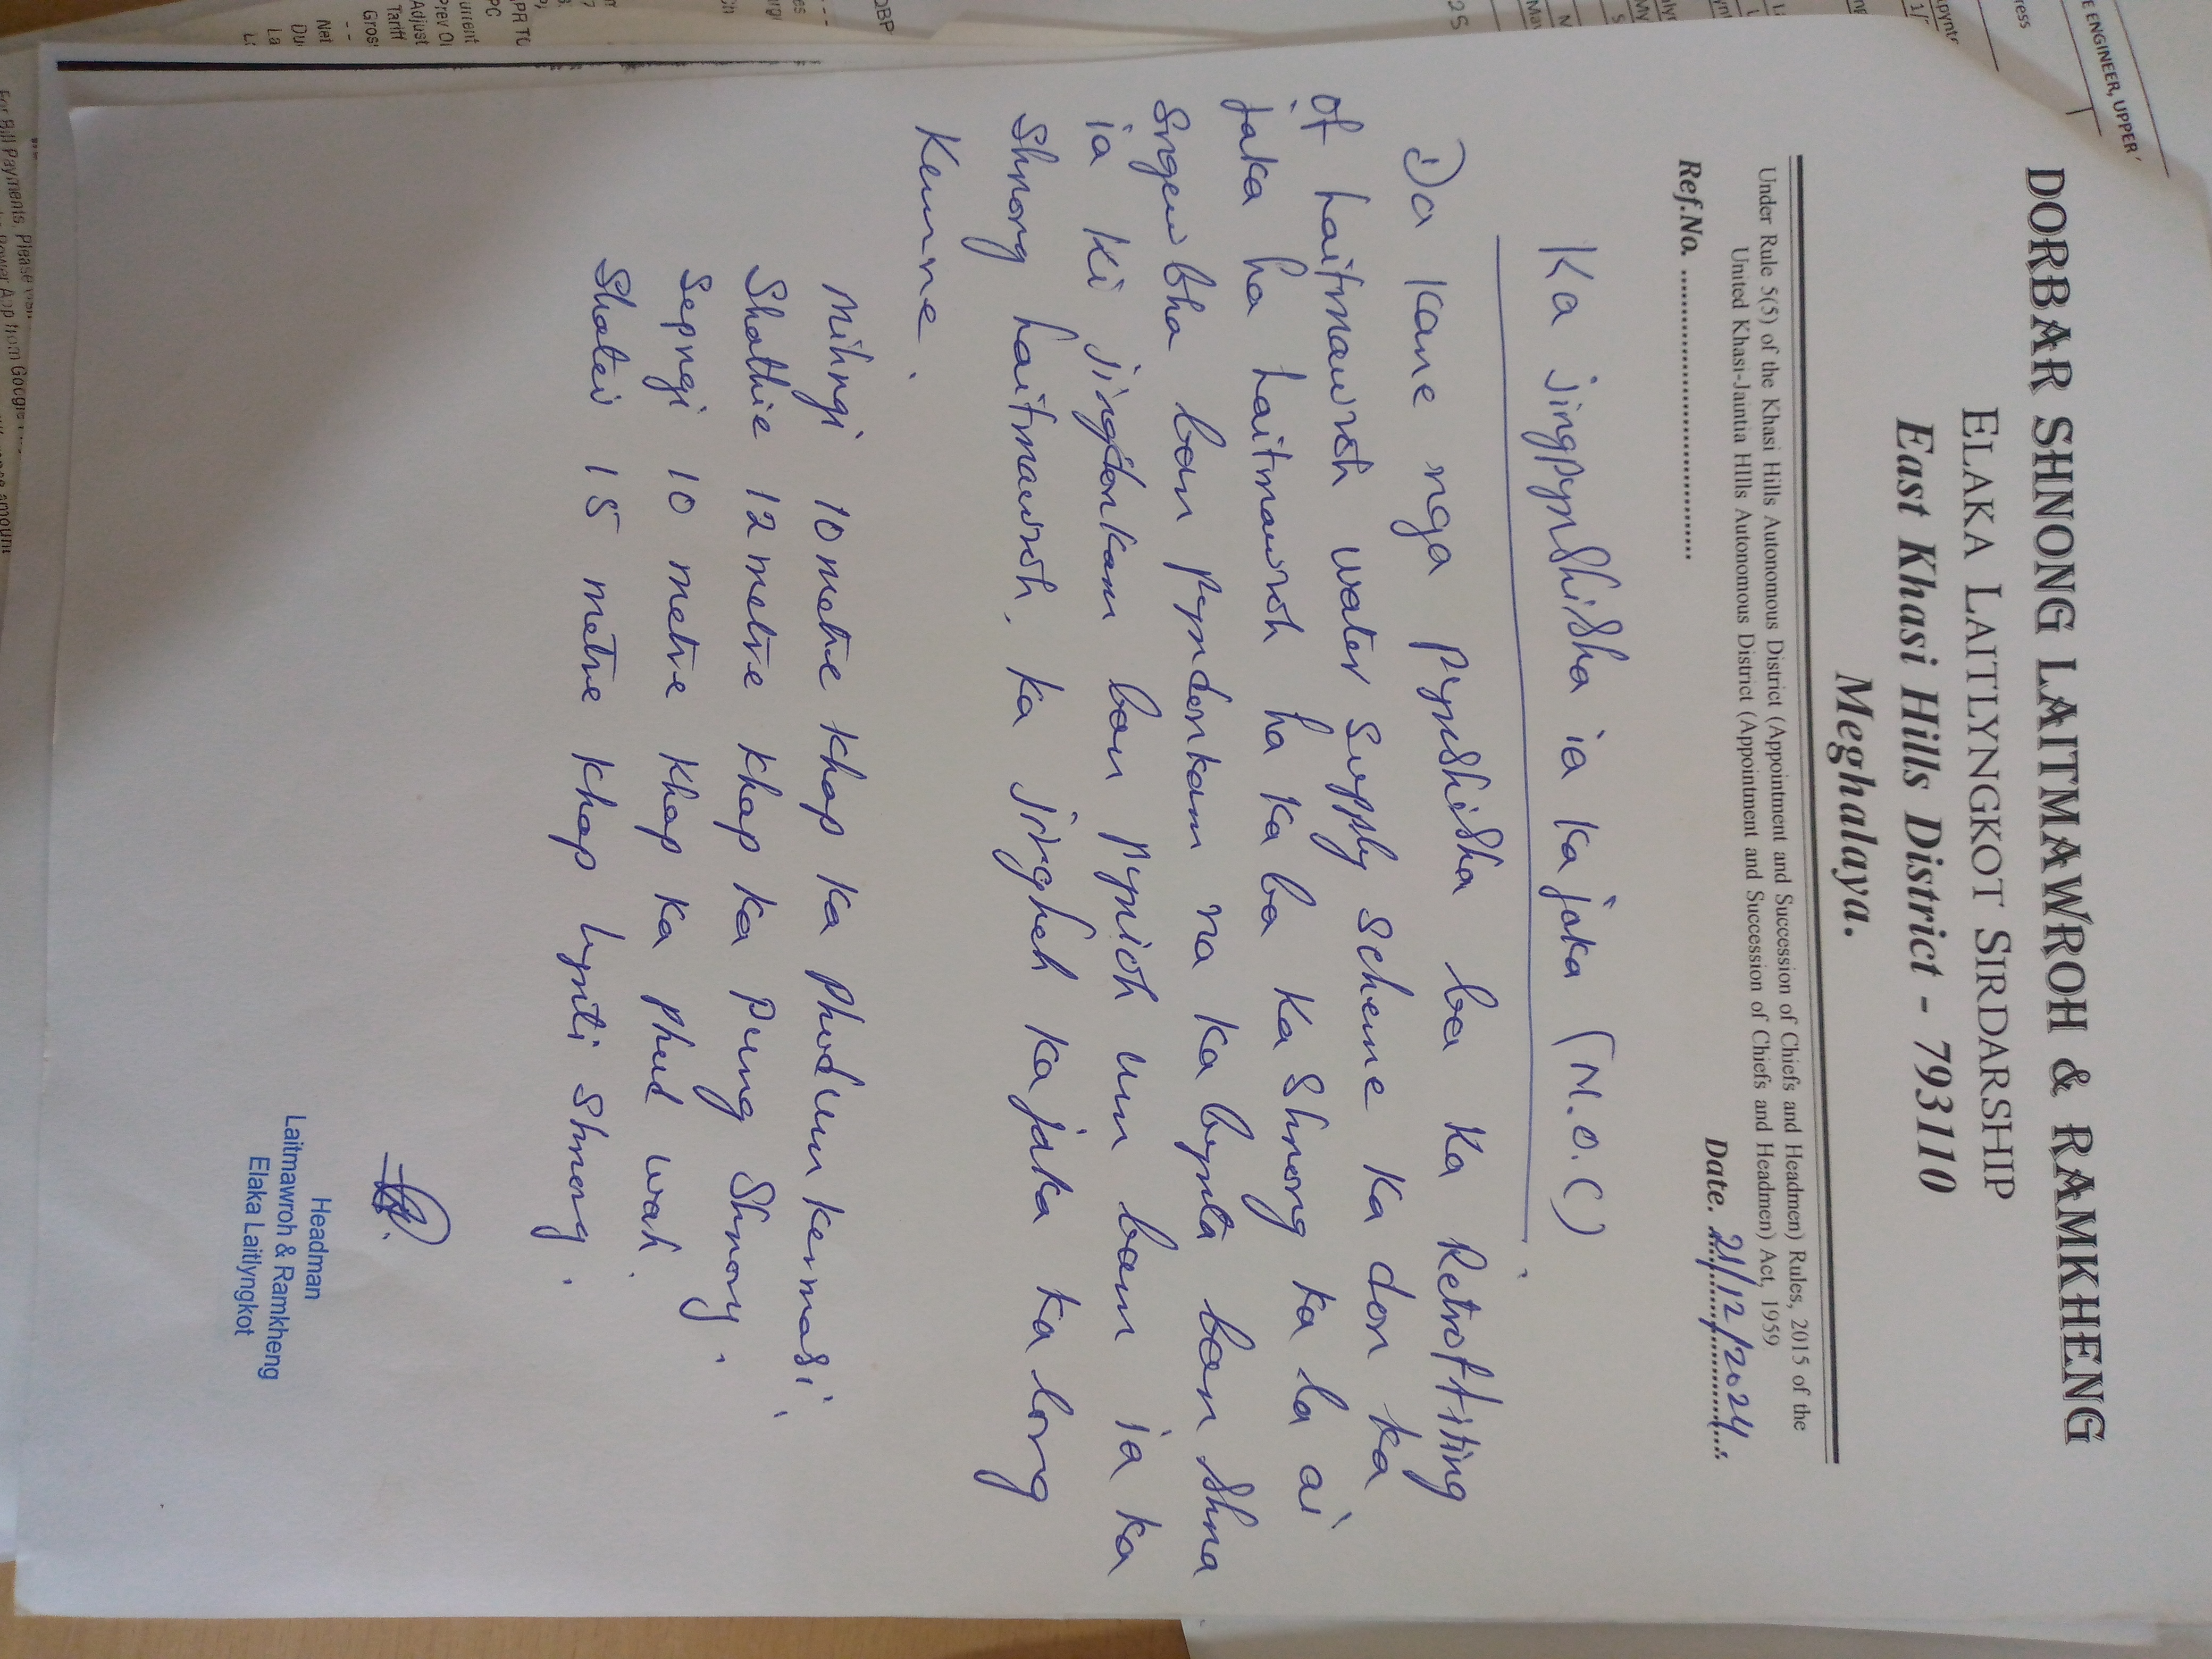 DORBAR SHNONG LAITMAWROH & RAMKHENG
ELAKA LAITLYNGKOT SIRDARSHIP
East Khasi Hills District - 793110
Meghalaya.
Under Rule 5(5) of the Khasi Hills Autonomous District (Appointment and Succession of Chiefs and Headmen) Rules, 2015 of the
United Khasi-Jaintia HIlls Autonomous District (Appointment and Succession of Chiefs and Headmen) Act, 1959
Ref.No. ........................................ Date. 21/12/2024
Ka jingpynshisha ia ka jaka (N.O.C)
Da kane nga pynshisha ba ka Retrofiting
of Laitmawroh water supply scheme ka don ka
jaka ha Laitmawroh ha kaba ka shnong ka la ai
sngewbha ban pyndonkam na ka bynta ban shna
ia ki jingdonkam ban pynioh um bam ia ka
shnong Laitmawroh, ka jingheh ka jaka ka long
kumne.
Mihngi 10 metre khap ka phodum kermasi,
Shathie 12 metre khap ka pung Shnong,
Sepngi 10 metre khap ka phud wah.
Shatei 15 metre khap lynti Shnong.
Headman
Laitmawroh & Ramkheng
Elaka Laitlyngkot
E ENGINEER, UPPER